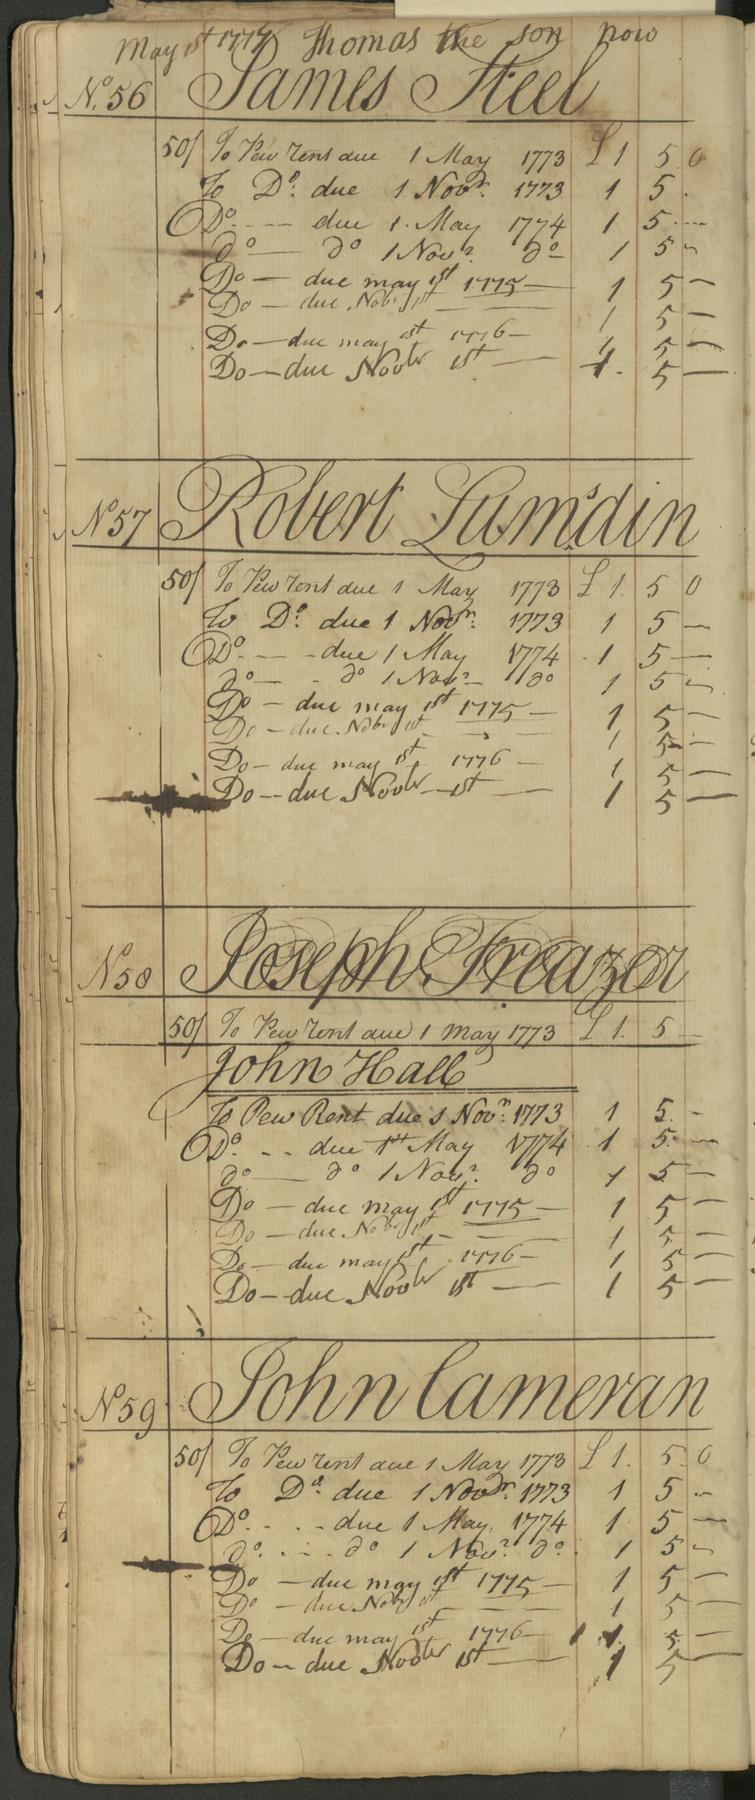 May 1st 1777 Thomas the son now
No. 56 James Steel
50/ To Pew Rent due 1 May 1773 £ 1 5 0
To Do. due 1 Novr. 1773 1 5 .
Do. - - - due 1. May 1774 1 5 - -
do — do 1 Novr. do 1 5 -
Do — due may 1st 1775 — 1 5 —
Do — due Nobr 1st — — 1 5 —
Do — due may 1st 1776 — 1 5 —
Do — due Noobr 1st — 1. 5 —
No 57 Robert Lumsdin
50/ To Pew Rent due 1 May 1773 £ 1. 5 0
To Do. due 1 Novr. 1773 1 5 —
Do. - - - due 1 May 1774 1 5 —
do — - do 1 Novr — do 1 5 -
Do — due may 1st 1775 — 1 5 —
Do — due Nobr 1st — — 1 5 —
Do — due may 1st 1776 — 1 5 —
Do — due Noobr — 1st — 1 5 —
No 58 Joseph Freazer
50/ To Pew Rent due 1 May 1773 £ 1. 5 —
John Hall
To Pew Rent due 1 Novr. 1773 1 5. -
Do. - - due 1st May 1774 1 5 —
do — do 1 Novr. do 1 5 —
Do — due may 1st 1775 — 1 5 —
Do — due Nobr 1st — — 1 5 —
Do — due may 1st 1776 — 1 5 —
Do — due Noobr 1st — 1 5 —
No 59 John Cameran
50/ To Pew Rent due 1 May 1773 £ 1. 5. 0
To Do. due 1 Novr. 1773 1 5 -
Do. - - - due 1 May 1774 1 5 —
do. - - - do 1 Novr. do. 1 5 -
Do — due may 1st 1775 — 1 5 —
Do — due Nobr 1st — — 1 5 —
Do — due may 1st 1776 — 1 5 —
Do — due Noobr 1st — 1 5 —